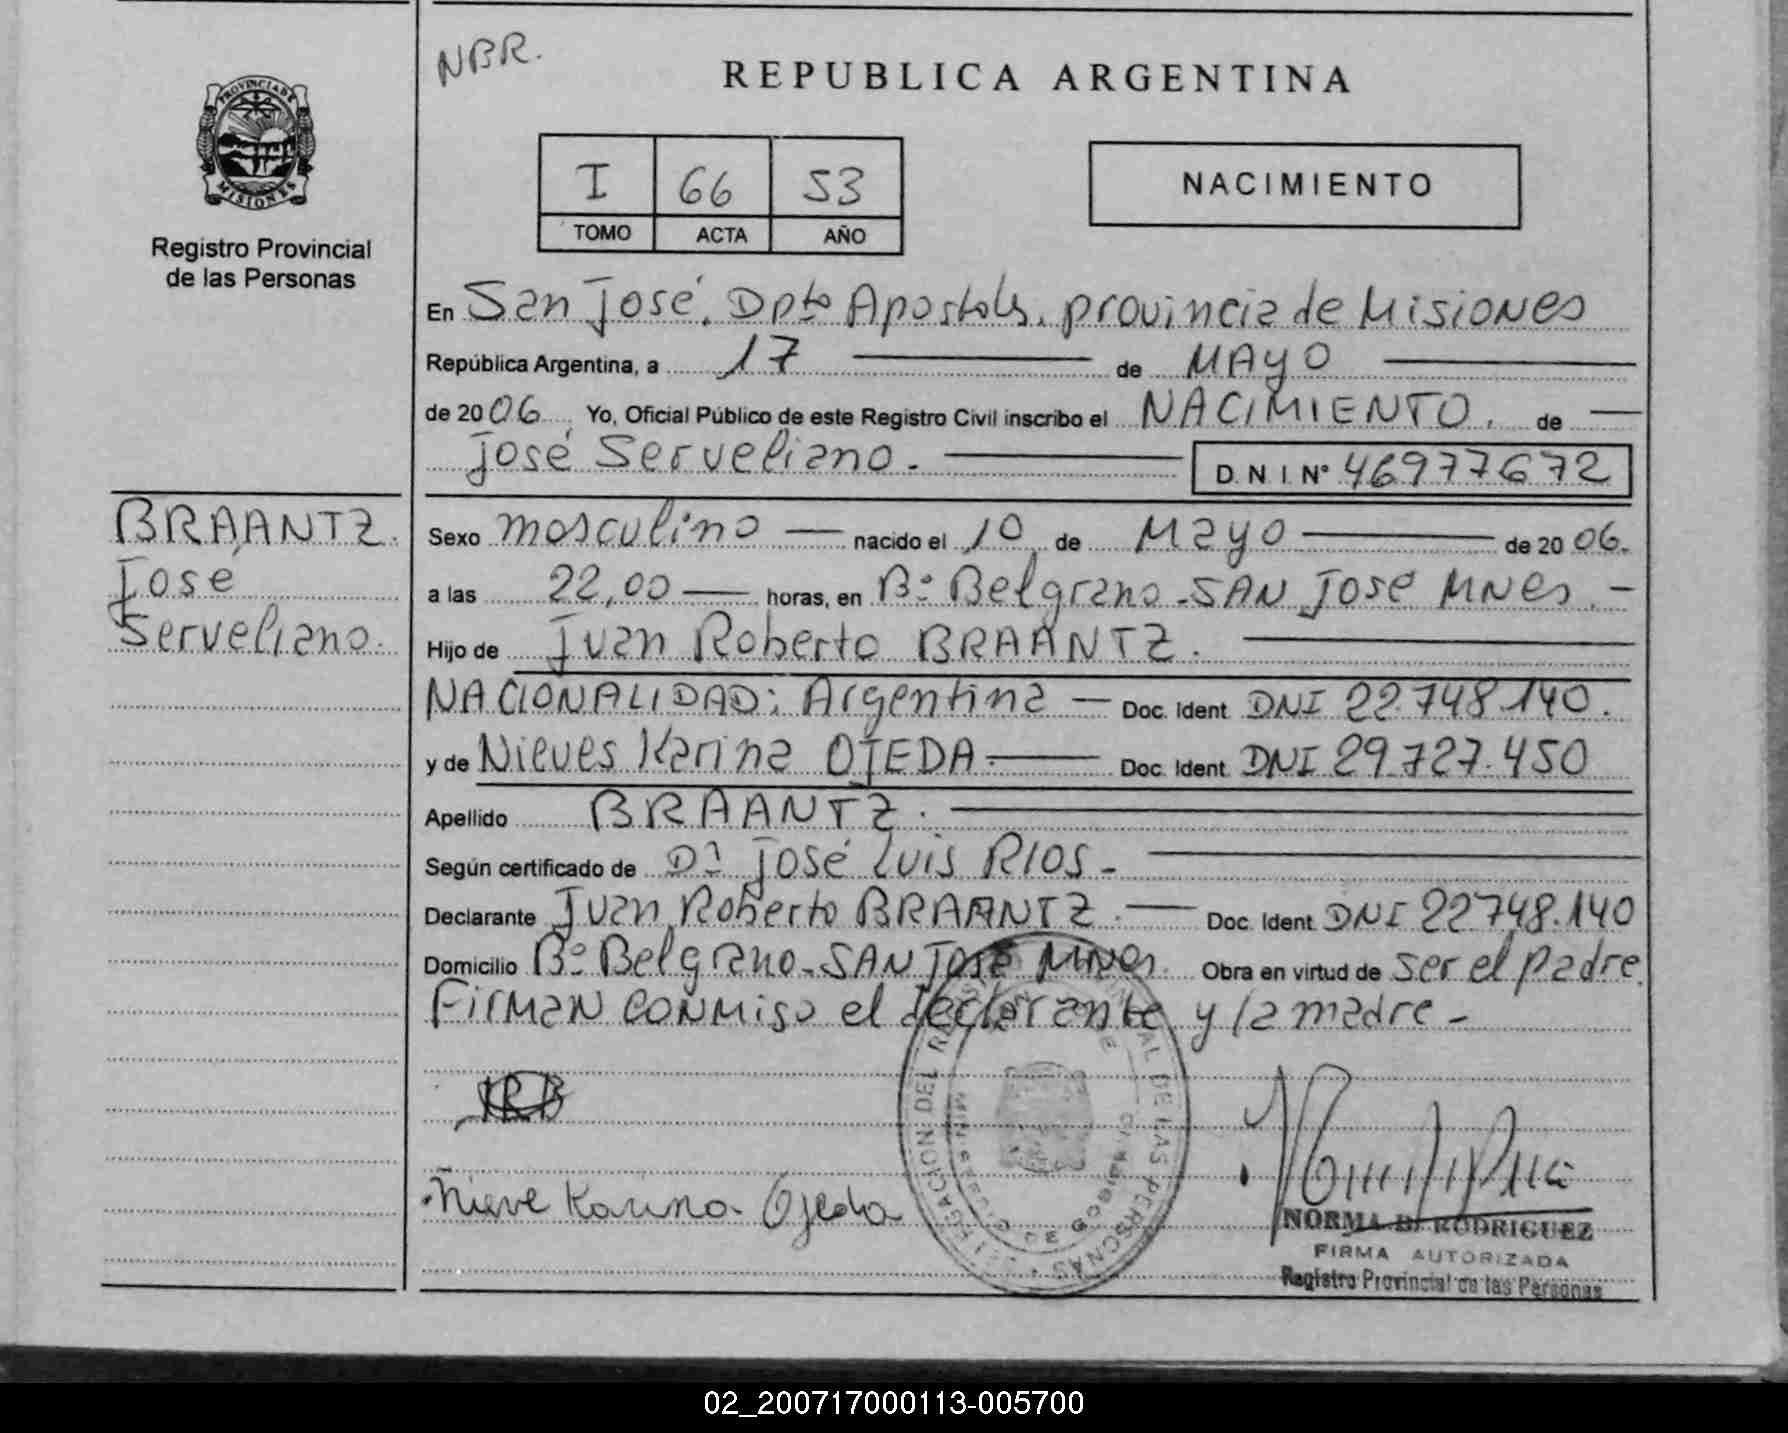 NBR.
REPUBLICA ARGENTINA
PROVINCIA DE
MISIONES
Registro Provincial
de las Personas
I 66 53
TOMO ACTA AÑO
NACIMIENTO
En San José. Dpto Apostoles. provincia de Misiones
República Argentina, a 17 de MAYO
de 2006 Yo, Oficial Público de este Registro Civil inscribo el NACIMIENTO. de
José Serveliano. D.N.I. N° 46977672
BRAANTZ.
José
Serveliano.
Sexo masculino nacido el 10 de Mayo de 2006.
a las 22,00 horas, en Bº Belgrano - SAN José MNes. -
Hijo de Juan Roberto BRAANTZ.
NACIONALIDAD: Argentina - Doc. Ident DNI 22.748.140.
y de Nieves Karina OJEDA. Doc. Ident DNI 29.727.450
Apellido BRAANTZ.
Según certificado de Dr José Luis RIOS -
Declarante Juan Roberto BRAANTZ. Doc. Ident DNI 22748.140
Domicilio Bº Belgrano - SAN José MNes. Obra en virtud de ser el padre.
Firman conmigo el declarante y la madre -
JRB
Nieve Karina Ojeda
DELEGACION DEL REGISTRO PROVINCIAL DE LAS PERSONAS
DE GOBIERNO
NORMA B. RODRIGUEZ
FIRMA AUTORIZADA
Registro Provincial de las Personas
02_200717000113-005700